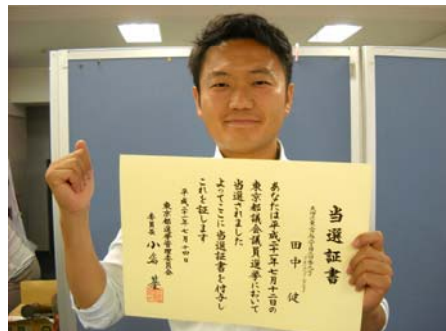 当選証書
田中 健
あなたは平成二十一年七月十二日の
東京都議会議員選挙において
当選されました
よってここに当選証書を付与し
これを証します
平成二十一年七月十四日
東京都選挙管理委員会
委員長